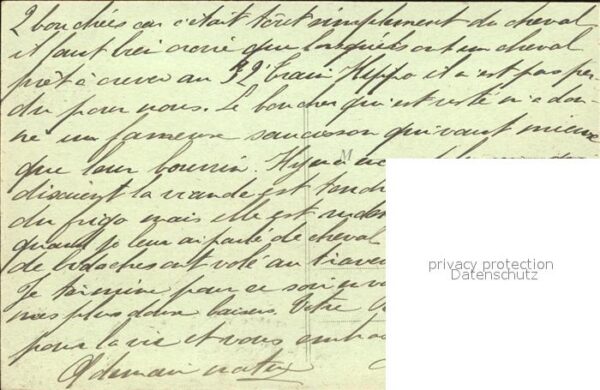 2 bouchées car c'était tout simplement du cheval
il faut bien croire que lorsqu'ils ont un cheval
prêt à crever au 32e train Hippo il n'est pas per
du pour nous. Le boucher qui est resté m'a don
né un fameux saucisson qui vaut mieux
que leur bourrin. Il y en a
disaient la viande est tendre
du frigo mais elle est
quand je leur ai parlé de cheval
de bidoches ont volé au travers
Je termine pour ce soir
mes plus doux baisers. Votre
pour la vie et vous
A demain
privacy protection
Datenschutz